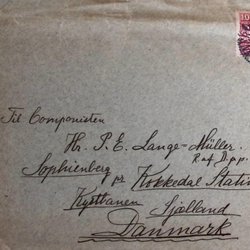 Til Componisten
Hr. P. E. Lange-Müller.
R af D.p.p.
Sophienberg pr Kokkedal Stati
Kystbanen
Sjælland
Danmark
10